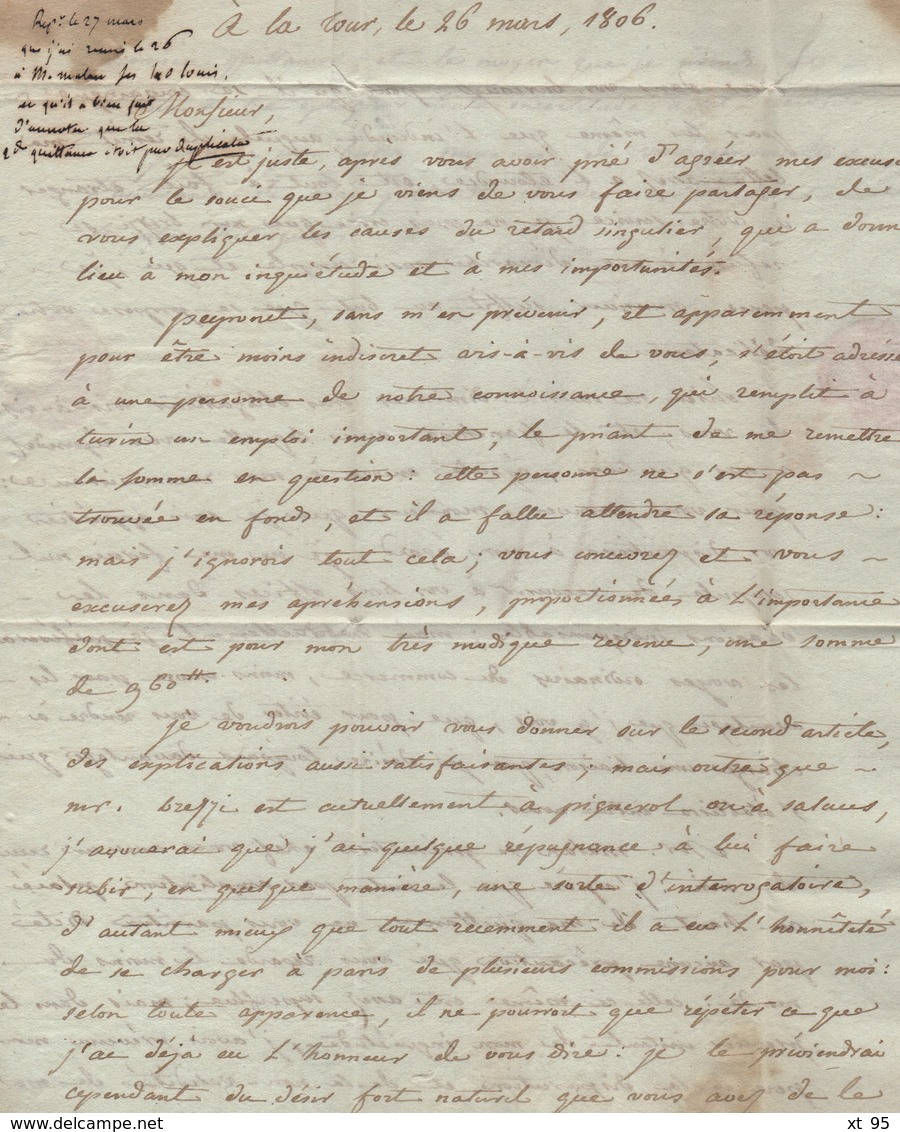 À la Tour, le 26 mars, 1806.
Rep.e le 27 mars
que j'ai remis le 26
à M. malan les 40 louis,
et qu'il a bien fait
d'annoter que la
2de quittance étoit par duplicata
Monsieur,
Il est juste, apres vous avoir prié d'agréer mes excuse
pour le souci que je viens de vous faire partager, de
vous expliquer les causes du retard singulier, qui a donn
lieu à mon inquiétude et à mes importunités.
peyronet, sans m'en prévenir, et apparemment
pour être moins indiscret vis-à-vis de vous, s'étoit adressé
à une personne de notre connoissance, qui remplit à
turin un emploi important, le priant de me remettre
la somme en question : cette personne ne s'est pas ~
trouvée en fonds, et il a fallu attendre sa réponse :
mais j'ignorois tout cela ; vous concevrez et vous ~
excuserez mes apréhensions, proportionnées à l'importance
dont est pour mon très modique revenu, une somme
de 960 tt.
je voudrois pouvoir vous donner sur le second article,
des explications aussi satisfaisantes ; mais outre que ~
mr. brezzi est actuellement à pignerol ou à saluces,
j'avouerai que j'ai quelque répugnance à lui faire
subir, en quelque manière, une sorte d'interrogatoire,
d'autant mieux que tout recemment il a eu l'honnêteté
de se charger à paris de plusieurs commissions pour moi :
selon toute apparence, il ne pourroit que répéter ce que
j'ai déjà eu l'honneur de vous dire : je le préviendrai
cependant du désir fort naturel que vous avez de le
xt 95